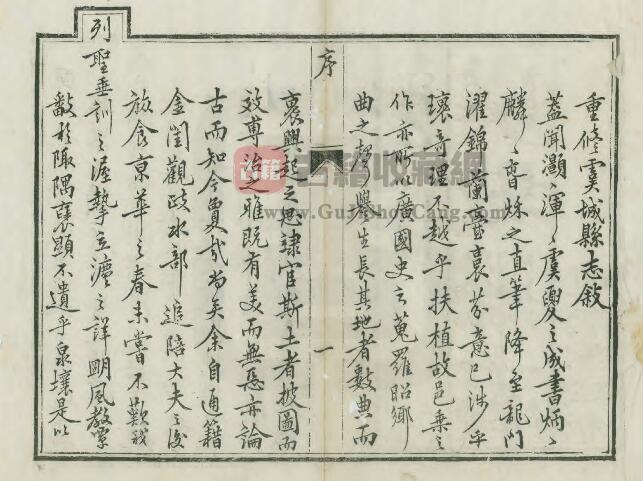 重修虞城縣志敘
蓋聞灝〻渾〻虞夏之成書炳〻
麟〻之直筆降至龍門
濯錦蘭臺裛芬意已涉乎
瓌奇理不越乎扶植故邑乗之
作亦所以廣國史之蒐羅昭鄉
曲之舉生長其地者數典而
序
一
興起之思隸官斯土者披圖而
效專治之雅既有美而無惡亦論
古而知今夐哉尚矣余自通籍
金閨觀政水部追陪大夫之後
飲食京華之春未嘗不歎我
列聖垂訓之渥摯立灋之詳明風教覃
敷於陬隅襃顯不遺乎泉壤是以
古籍
古籍收藏網
www.GuJiShouCang.com